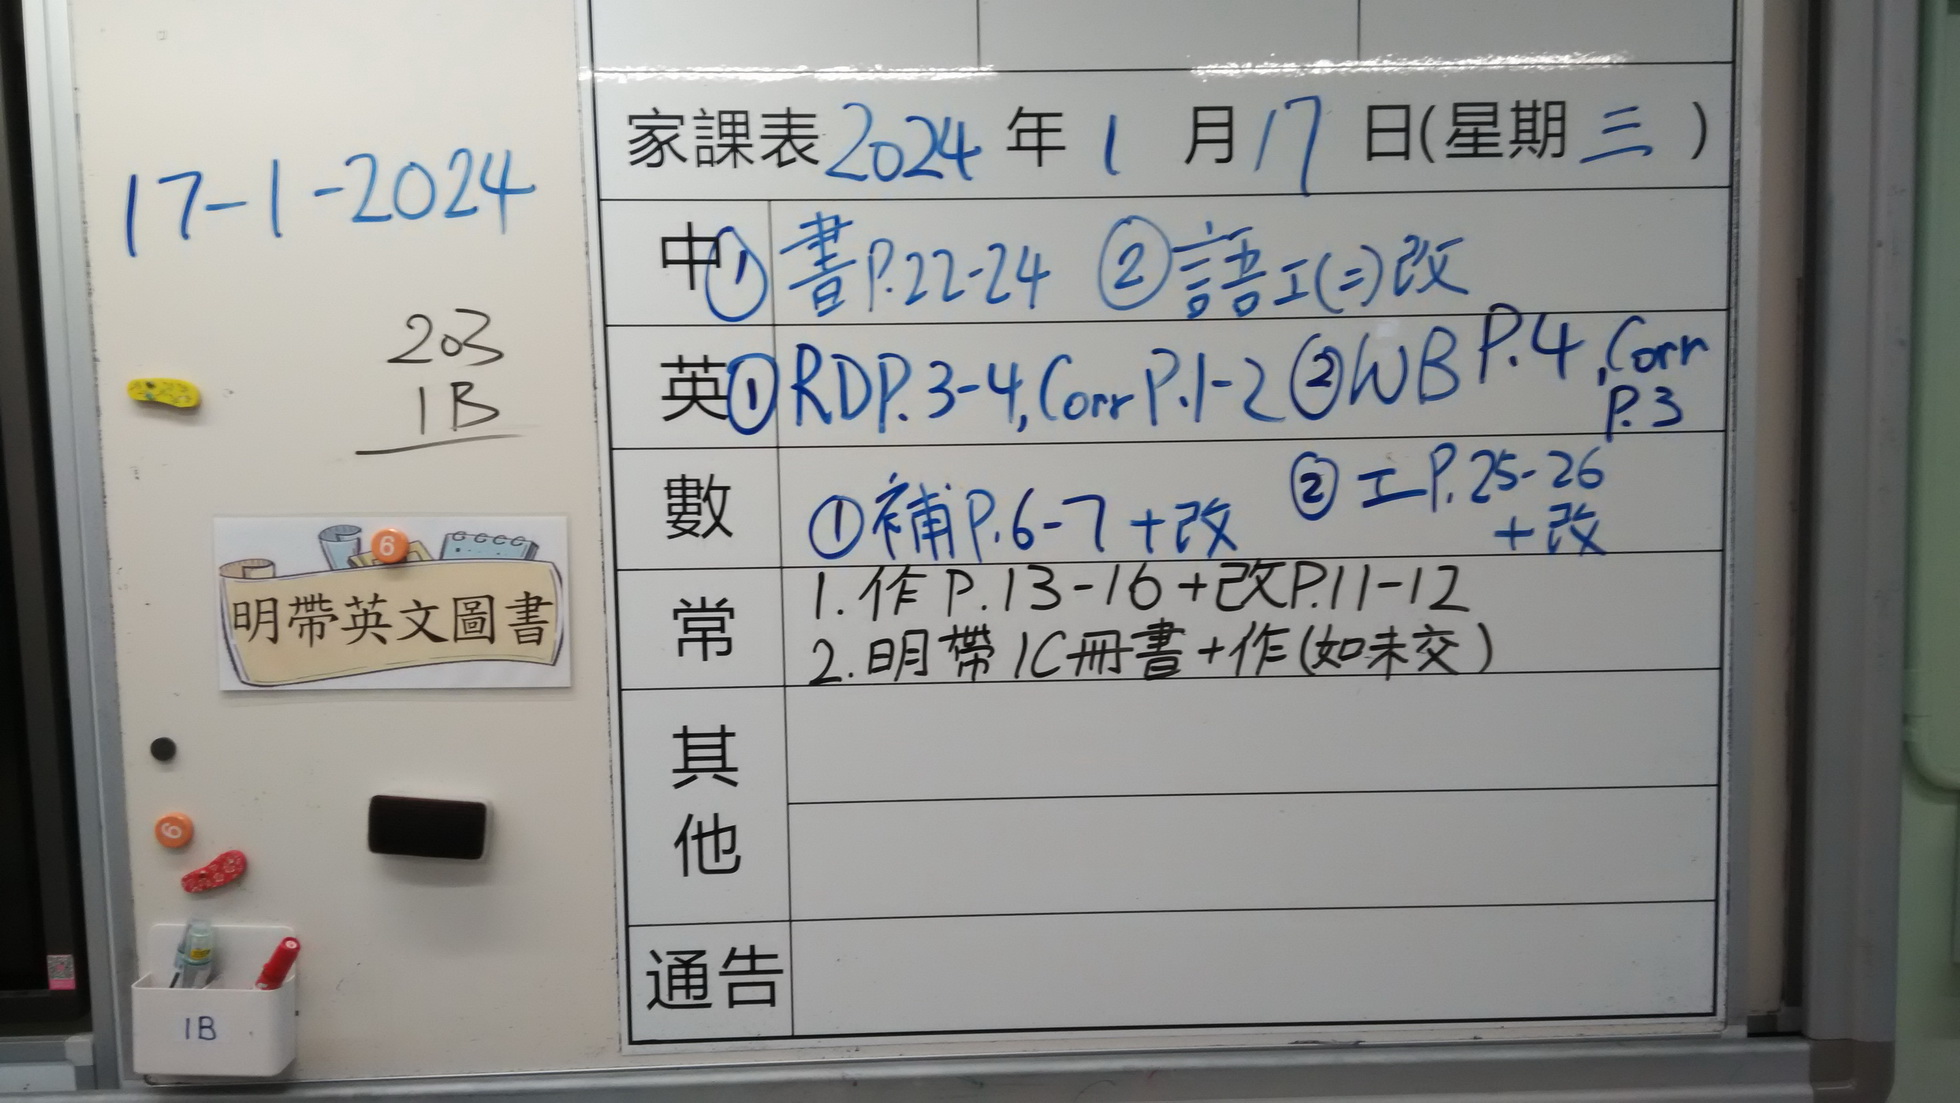 17-1-2024
203
1B
6
明帶英文圖書
6
1B
家課表 2024 年 1 月 17 日(星期 三 )
中 ① 書P.22-24 ② 語工(二)改
英 ① RDP.3-4, Corr P.1-2 ② WB P.4, Corr
P.3
數 ① 補P.6-7+改 ② 工P.25-26
+改
常 1. 作P.13-16+改P.11-12
2. 明帶1C冊書+作(如未交)
其
他
通告